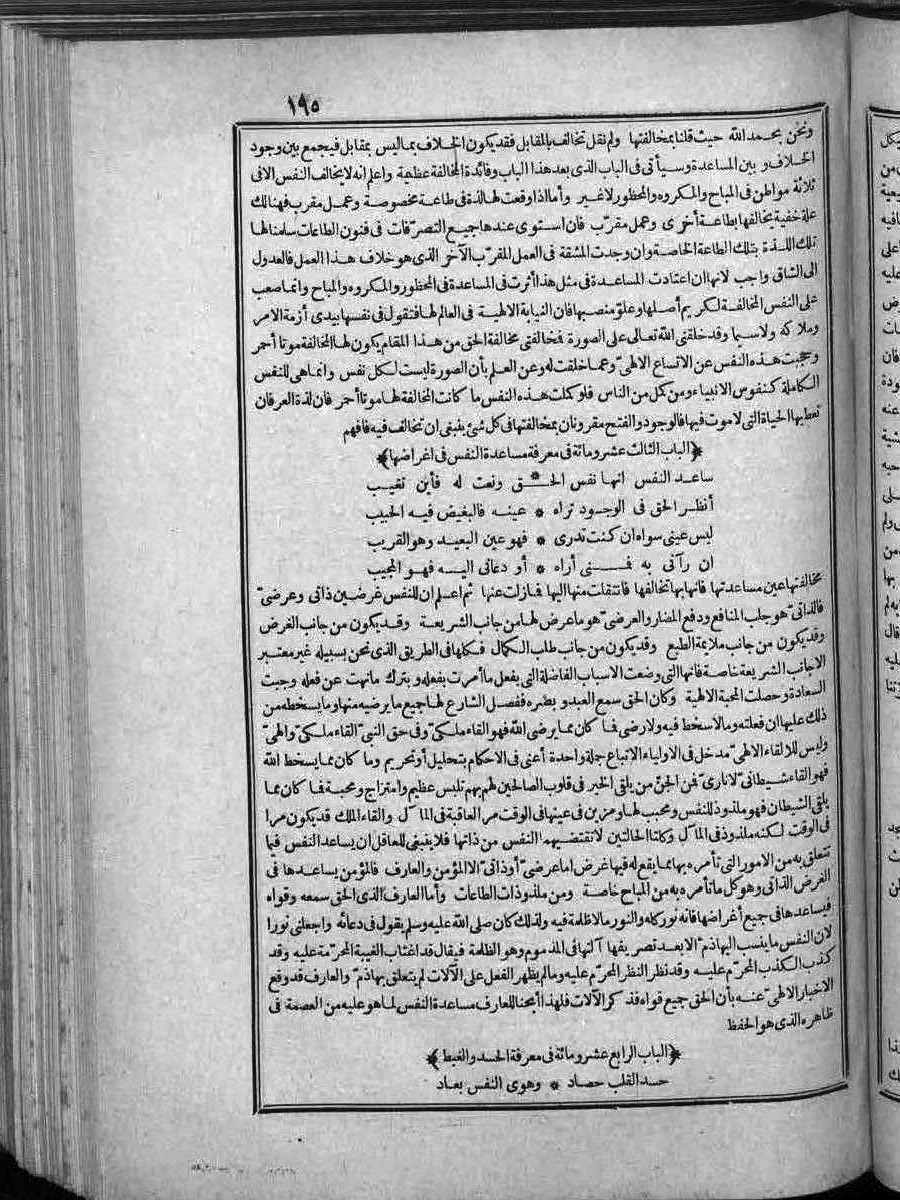 ١٩٥
ونحن بحمد الله حيث قلنا بمخالفتها ولم نقل تخالف بالمقابل فقد يكون الخلاف بما ليس بمقابل فيجمع بين وجود
الخلاف و بين المساعدة وسيأتى فى الباب الذى بعد هذا الباب وفائدة المخالفة عظيمة واعلم انه لا يخالف النفس الا فى
ثلاثة مواطن فى المباح والمكروه والمحظور لا غير وأما اذا وقعت لها لذة فى طاعة مخصوصة وعمل مقرب فهنالك
علة خفية يخالفها بطاعة أخرى وعمل مقرّب فان استوى عندها جميع التصرّفات فى فنون الطاعات سلمنا لها
تلك اللذة بتلك الطاعة الخاصة وان وجدت المشقة فى العمل المقرّب الآخر الذى هو خلاف هذا العمل فالعدول
الى الشاق واجب لانها ان اعتادت المساعدة فى مثل هذا أثرت فى المساعدة فى المحظور والمكروه والمباح وانما صعب
على النفس المخالفة لكريم أصلها وعلوّ منصبها فان النيابة الالهية فى العالم لها فتقول فى نفسها بيدى أزمة الامر
وملاكه ولا سيما وقد خلقنى الله تعالى على الصورة فمخالفتى مخالفة الحق من هذا المقام يكون لها المخالفة موتا أحمر
وحجبت هذه النفس عن الاتساع الالهىّ وعما خلقت له وعن العلم بأن الصورة ليست لكل نفس وانما هى للنفس
الكاملة كنفوس الانبياء ومن كمل من الناس فلو كملت هذه النفس ما كانت المخالفة لها موتا أحمر فان لذة العرفان
تعطيها الحياة التى لا موت فيها فالوجود والفتح مقرونان بمخالفتها فى كل شئ ينبغى ان تخالف فيه فافهم
﴿الباب الثالث عشر ومائة فى معرفة مساعدة النفس فى اغراضها﴾
ساعد النفس انها نفس الحـق * ونعت له فأين تغيب
أنظر الحق فى الوجود تراه * عينه فالبغيض فيه الحبيب
ليس عينى سواه ان كنت تدرى * فهو عين البعيد وهو القريب
ان رآنى به فمنى أراه * أو دعانى اليه فهو المجيب
مخالفتها عين مساعدتها فانها بها تخالفها فانتقلت منها اليها فما زلت عنها ثم اعلم ان للنفس غرضين ذاتى وعرضىّ
فالذاتىّ هو جلب المنافع ودفع المضار والعرضىّ هو ما عرض لها من جانب الشريعة وقد يكون من جانب الغرض
وقد يكون من جانب ملاءمة الطبع وقد يكون من جانب طلب الكمال فكلها فى الطريق الذى نحن بسبيله غير معتبر
الا جانب الشريعة خاصة فانها التى وضعت الاسباب الفاضلة التى بفعل ما أمرت بفعله وبترك مانهت عن فعله وجبت
السعادة وحصلت المحبة الالهية وكان الحق سمع العبد و بصره ففصل الشارع لها جميع ما يرضيه منها وما يسخطه من
ذلك عليها ان فعلته وما لا سخط فيه ولا رضى فما كان مما يرضى الله فهو القاء ملكىّ وفى حق النبىّ القاء ملكىّ والهىّ
وليس للالقاء الالهىّ مدخل فى الاولياء الاتباع جملة واحدة أعنى فى الاحكام بتحليل أو تحريم وما كان مما يسخط الله
فهو القاء شيطانىّ لا نارىّ فمن الجنّ من يلقى الخير فى قلوب الصالحين لهم بهم تلبس عظيم وامتزاج ومحبة فما كان مما
يلقى الشيطان فهو ملذوذ للنفس ومحبب لها ومزين فى عينها فى الوقت مر العاقبة فى المآل والقاء الملك قد يكون مرا
فى الوقت لكنه ملذوذ فى المآل وكلتا الحالتين لا تقتضيهما النفس من ذاتها فلا ينبغى للعاقل ان يساعد النفس فيما
تتعلق به من الامور التى تأمره بها مما يقع له فيها غرض اما عرضىّ أو ذاتىّ الا المؤمن والعارف فالمؤمن يساعدها فى
الغرض الذاتى وهو كل ما تأمره به من المباح خاصة ومن ملذوذات الطاعات وأما العارف الذى الحق سمعه وقواه
فيساعدها فى جميع أغراضها فانه نور كله والنور ما لا ظلمة فيه ولذلك كان صلى الله عليه وسلم يقول فى دعائه واجعلنى نورا
لان النفس ما ينسب اليها ذمّ الا بعد تصريفها آلتها فى المذموم وهو الظلمة فيقال قد اغتاب الغيبة المحرّمة عليه وقد
كذب الكذب المحرّم عليه وقد نظر النظر المحرّم عليه وما لم يظهر الفعل على الآلات لم يتعلق بها ذمّ والعارف قد وقع
الاخبار الالهىّ عنه بأن الحق جميع قواه فذكر الآلات فلهذا أبحنا للعارف مساعدة النفس لما هو عليه من العصمة فى
ظاهره الذى هو الحفظ
﴿الباب الرابع عشر ومائة فى معرفة الحسد والغبط﴾
حسد القلب حصاد * وهوى النفس بعاد